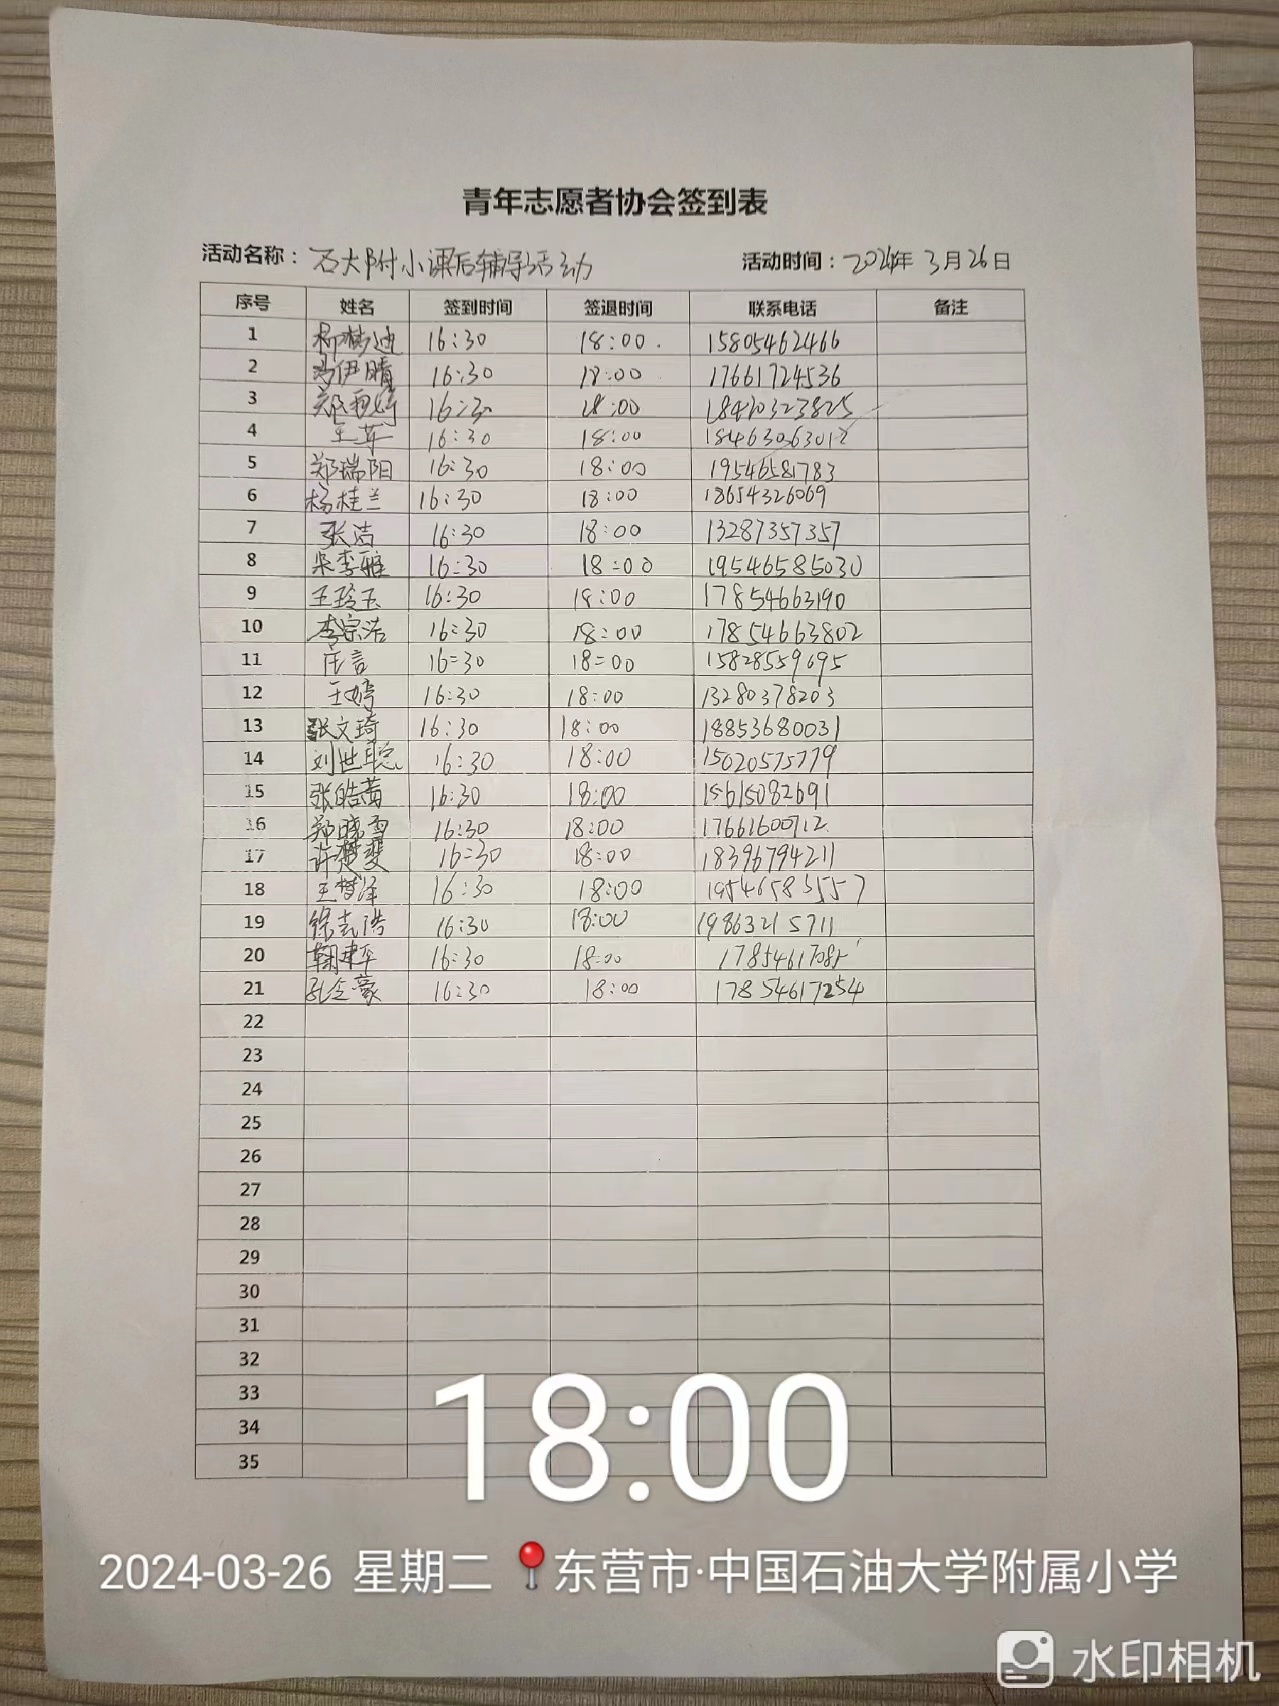 青年志愿者协会签到表
活动名称：石大附小课后辅导活动 活动时间：2024年 3月26日
序号 姓名 签到时间 签退时间 联系电话 备注
1 柳 迪 16:30 18:00 15805462466
2 冯伊晴 16:30 18:00 17661724536
3 16:30 18:00
4 王苹 16:30 18:00 18463063012
5 郑瑞阳 16:30 18:00 19546581783
6 杨桂兰 16:30 18:00 18654326069
7 张洁 16:30 18:00 13287357357
8 吴李雅 16:30 18:00 19546585030
9 王玲玉 16:30 18:00 17854663190
10 李宗浩 16:30 18:00 17854663802
11 言 16:30 18:00 15828559695
12 王婷 16:30 18:00 13280378203
13 张文琦 16:30 18:00 18853680031
14 刘世聪 16:30 18:00 15020575779
15 张皓茜 16:30 18:00 15615082691
16 郑晓雪 16:30 18:00 17661600712
17 许楚斐 16:30 18:00 18396794211
18 王梦泽 16:30 18:00 19546583557
19 徐志浩 16:30 18:00 19863215711
20 鞠建平 16:30 18:00
21 孔令豪 16:30 18:00 17854617254
22
23
24
25
26
27
28
29
30
31
32
33
34
35
18:00
2024-03-26 星期二 东营市·中国石油大学附属小学
水印相机